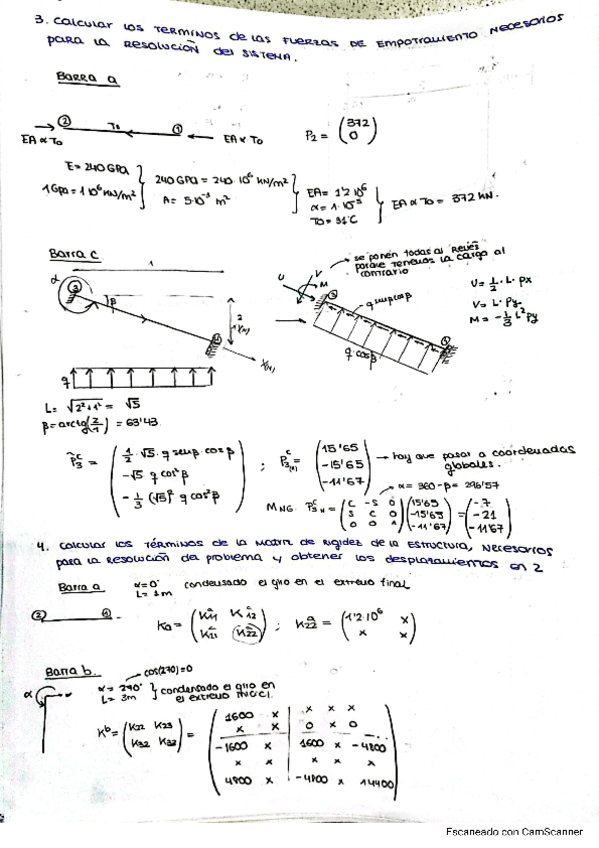 3. Calcular los términos de las fuerzas de empotramiento necesarios
para la resolución del sistema.
Barra a
② To ①
EA∝To EA∝To
P₂ = (372 0)
E = 240 GPa
1 GPa = 1·10⁶ kN/m²
240 GPa = 240·10⁶ kN/m²
A = 5·10⁻³ m²
EA = 1'2·10⁶
α = 1·10⁻⁵
To = 31°C
EA∝To = 372 kN.
Barra c
1
se ponen todas al revés
porque tenemos la carga al
contrario
U V M
α ③ β
q senβ cosβ
2
X(m)
q cosβ
U = 1/2 · L · px
V = L · py
M = -1/3 L² py
q
L = √(2²+1²) = √5
β = arctg(2/1) = 63'43
P̃₃ᶜ = (1/2 · √5 · q senβ cosβ
-√5 q cos²β
-1/3 (√5)² q cos²β)
; P₃ᶜ = (15'65
-15'65
-11'67)
→ hay que pasar a coordenadas
globales.
α = 360 - β = 296'57
MNG · P₃ᶜ = (C -S 0
S C 0
0 0 1) (15'65
-15'65
-11'67) = (-7
-21
-11'67)
4. Calcular los términos de la matriz de rigidez de la estructura, necesarios
para la resolución de problema y obtener los desplazamientos en 2
Barra a α = 0° condensado el giro en el extremo final
② ①
Ka = (K11 K12
K21 K22) ; K22ᵃ = (1'2·10⁶ x
x x)
Barra b.
cos(270) = 0
α
α = 270°
L = 3m
condensado el giro en
el extremo inicial
Kᵇ = (K22 K23
K32 K33) =
1600 x x x x
x x 0 x 0
-1600 x 1600 x -4800
x x x x x
4800 x -4800 x 14400
Escaneado con CamScanner